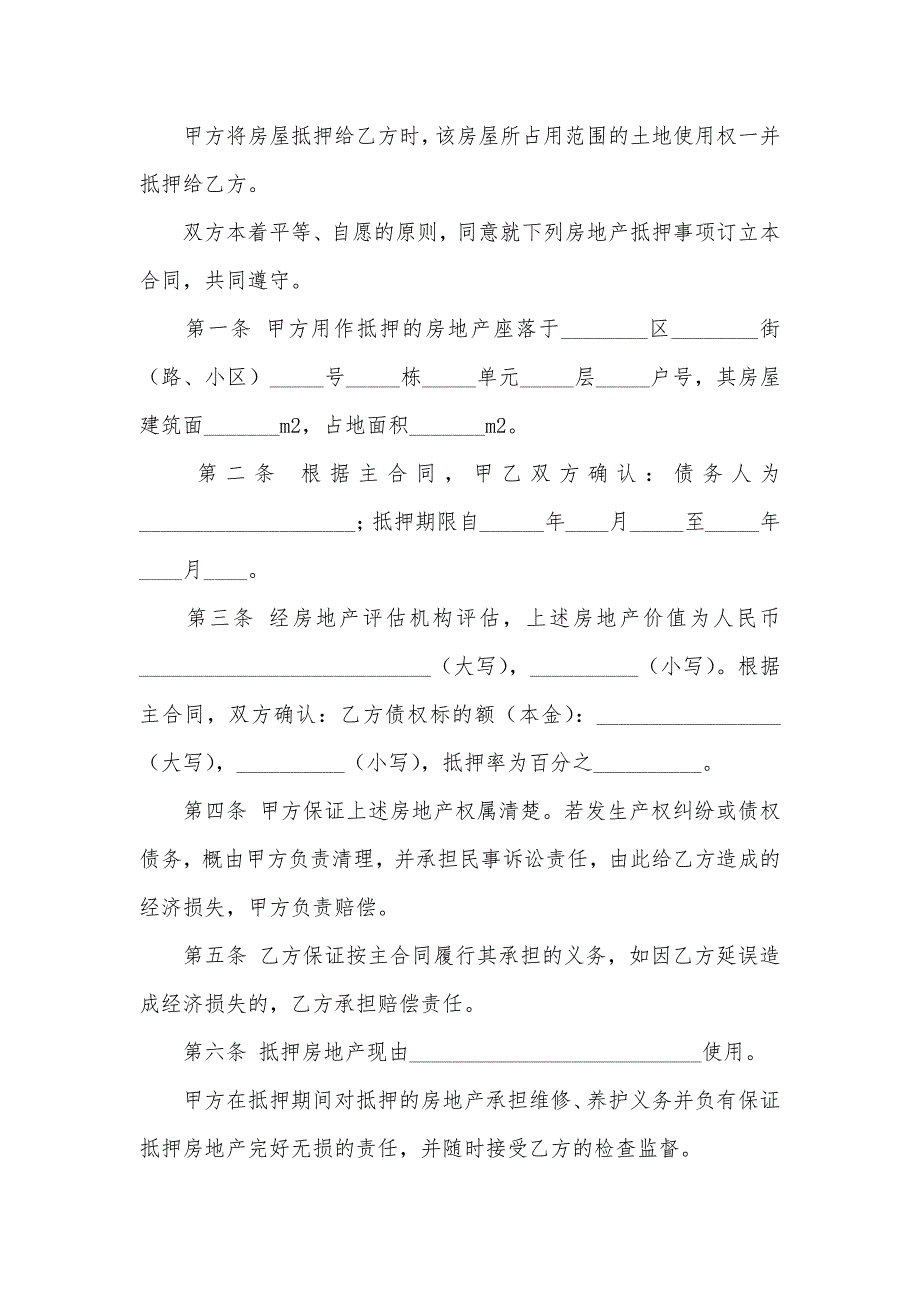 甲方将房屋抵押给乙方时，该房屋所占用范围的土地使用权一并
抵押给乙方。
双方本着平等、自愿的原则，同意就下列房地产抵押事项订立本
合同，共同遵守。
第一条 甲方用作抵押的房地产座落于________区________街
（路、小区）_____号_____栋_____单元_____层_____户号，其房屋
建筑面_______m2，占地面积_______m2。
第二条 根据主合同，甲乙双方确认：债务人为
____________________；抵押期限自______年____月_____至_____年
____月____。
第三条 经房地产评估机构评估，上述房地产价值为人民币
___________________________（大写），__________（小写）。根据
主合同，双方确认：乙方债权标的额（本金）：_________________
（大写），__________（小写），抵押率为百分之__________。
第四条 甲方保证上述房地产权属清楚。若发生产权纠纷或债权
债务，概由甲方负责清理，并承担民事诉讼责任，由此给乙方造成的
经济损失，甲方负责赔偿。
第五条 乙方保证按主合同履行其承担的义务，如因乙方延误造
成经济损失的，乙方承担赔偿责任。
第六条 抵押房地产现由___________________________使用。
甲方在抵押期间对抵押的房地产承担维修、养护义务并负有保证
抵押房地产完好无损的责任，并随时接受乙方的检查监督。